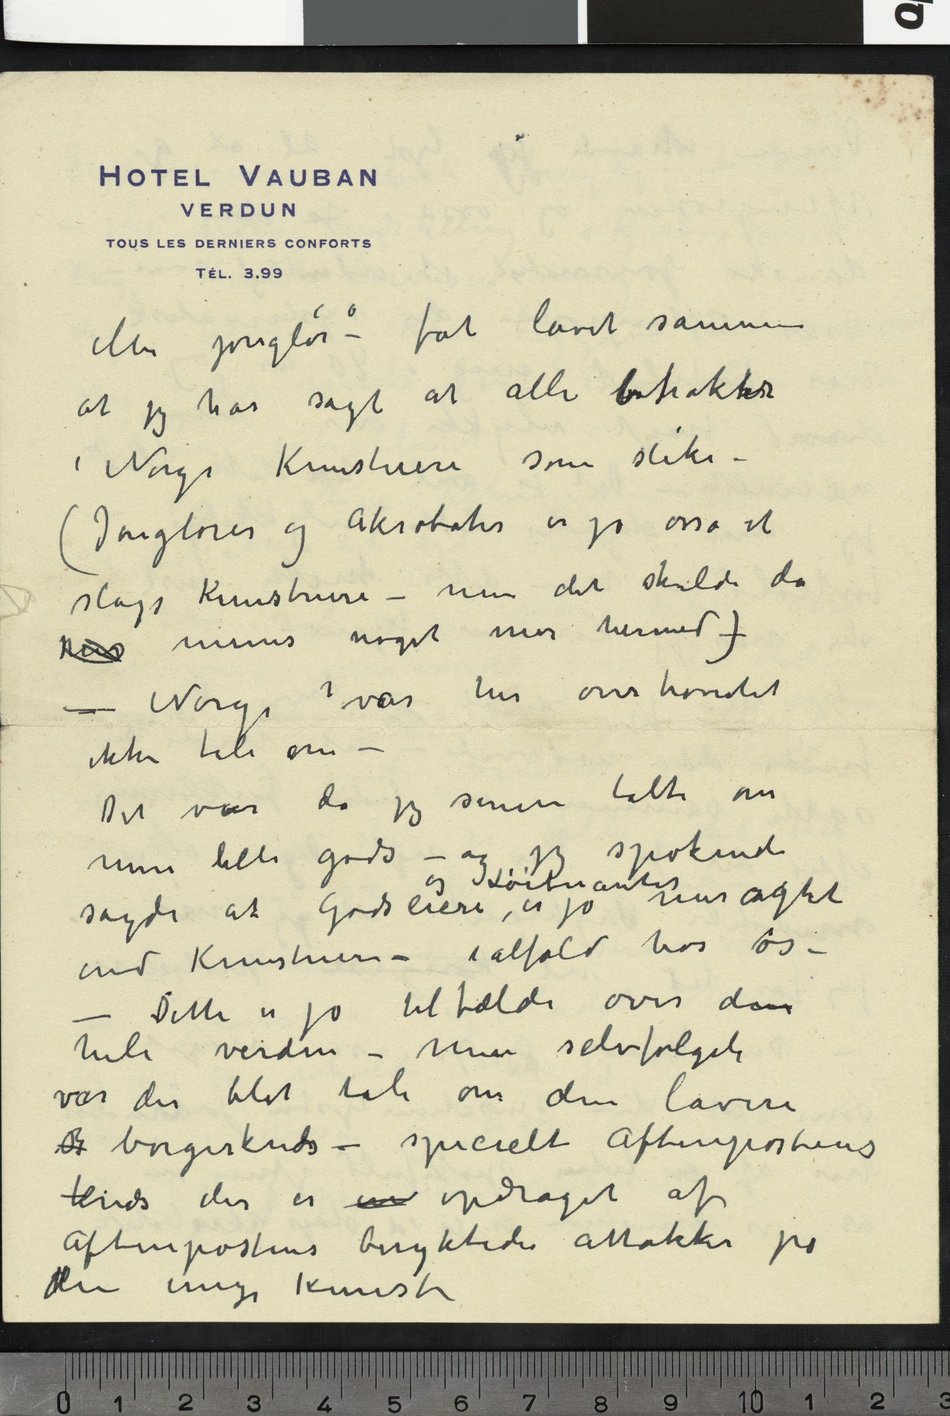 HOTEL VAUBAN
VERDUN
TOUS LES DERNIERS CONFORTS
TÉL. 3.99
eller jonglør" – fåt lavet sammen
at jeg har sagt at alle betrakter
i Norge Kunstnere som slike –
(Jonglører og Akrobater er jo osså et
slags Kunstnere – men det skulde da
menes noget mer hermed)
— Norge var her overhovedet
ikke tale om –
Det var da jeg senere talte om
min lille gods – og jeg spøkende
og Løitnanter
sagde at Godseiere, er jo mer agtet
end Kunstnere – ialfald hos os –
— Dette er jo tilfælde over den
hele verden – Men selvfølgeli
var der blot tale om den lavere
borgerkreds – specielt Aftenpostens
kreds der er opdraget af
Aftenpostens beryktede attakker på
den unge Kunst
0 1 2 3 4 5 6 7 8 9 10 1 2 3